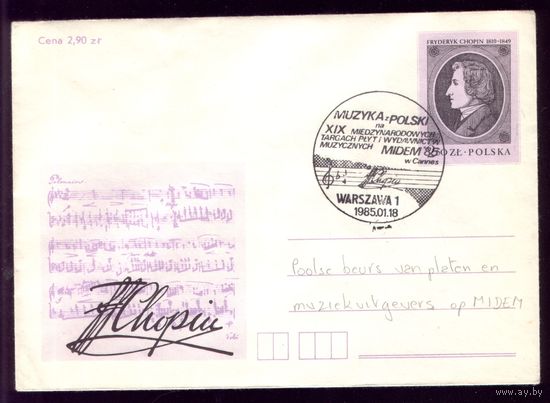 Cena 2,90 zł
FRYDERYK CHOPIN 1810-1849
ZŁ · POLSKA
MUZYKA z POLSKI
na
XIX MIĘDZYNARODOWYCH
TARGACH PŁYT i WYDAWNICTW
MUZYCZNYCH MIDEM '85
w Cannes
Chopin
WARSZAWA 1
1985.01.18
Polonaise
Chopin
Poolse beurs van platen en
muziekuitgevers op MIDEM
www.ay.by